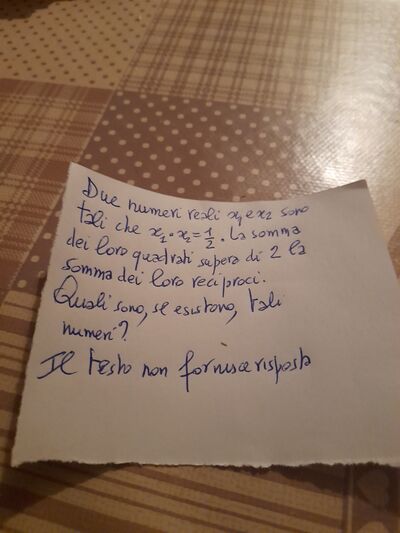 Due numeri reali x₁ e x₂ sono
tali che x₁ · x₂ = 1/2. La somma
dei loro quadrati supera di 2 la
somma dei loro reciproci.
Quali sono, se esistono, tali
numeri?
Il testo non fornisce risposta